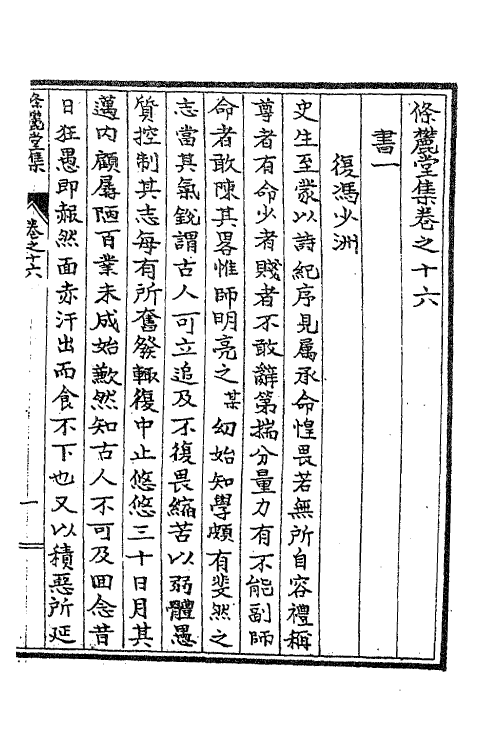 條麓堂集卷之十六
書一
復馮少洲
史生至蒙以詩紀序見属承命惶畏若無所自容禮稱
尊者有命少者賤者不敢辭第揣分量力有不能副師
命者敢陳其畧惟師明亮之某幼始知學頗有斐然之
志當其氣銳謂古人可立追及不復畏縮苦以弱體愚
質控制其志每有所奮發輙復中止悠悠三十日月其
邁内顧孱陋百業未成始歉然知古人不可及回念昔
日狂愚即赧然面赤汗出而食不下也又以積惡所延
條麓堂集
卷之十六
一